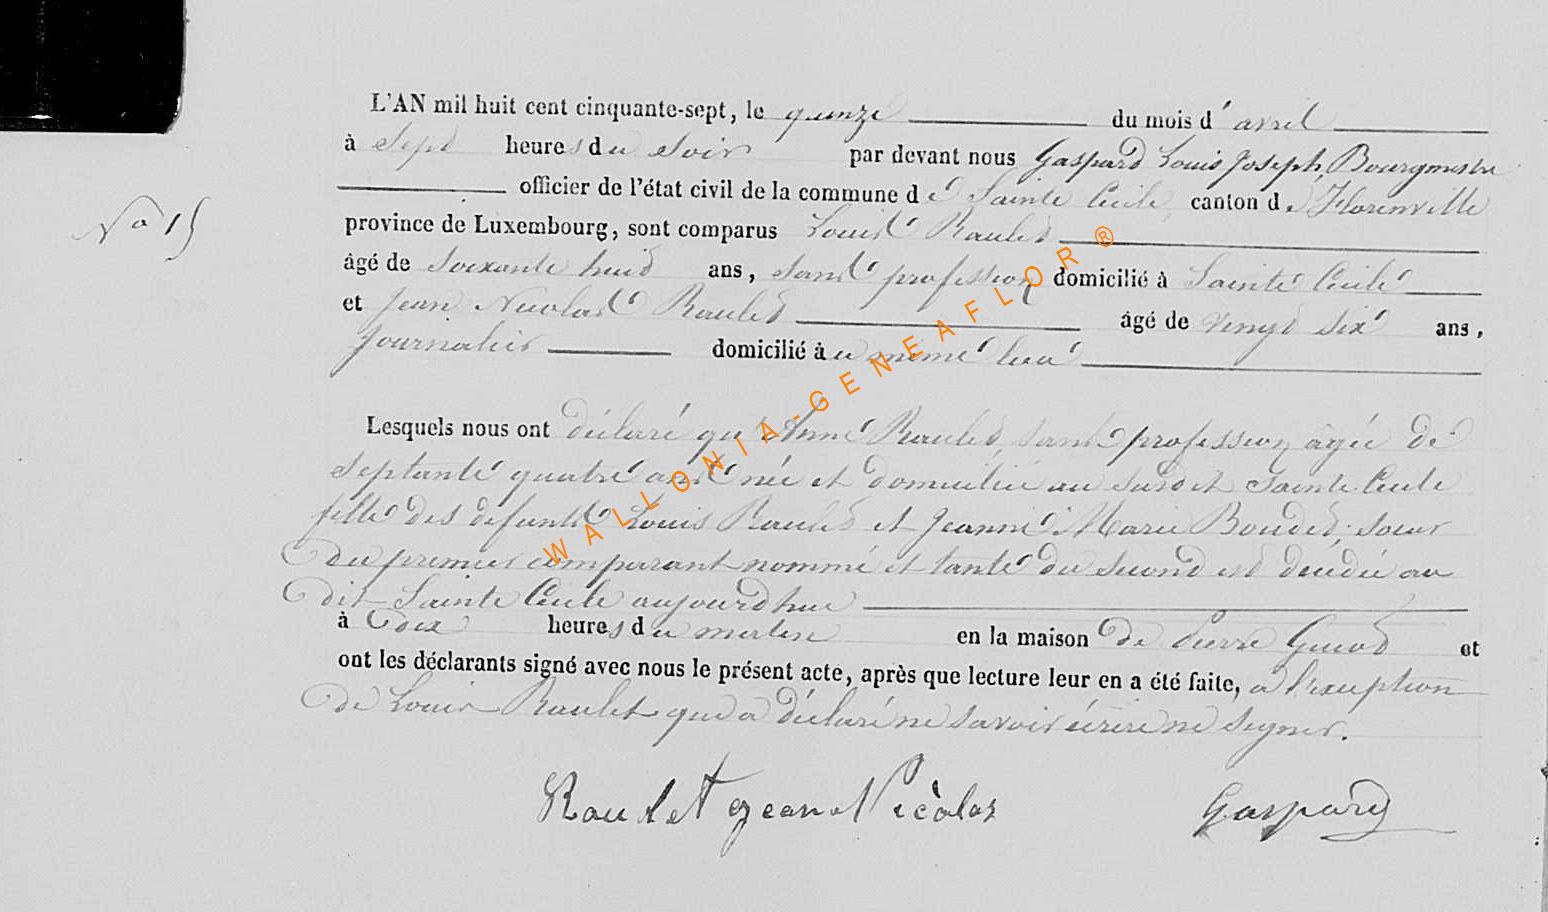 L'AN mil huit cent cinquante-sept, le quinze du mois d'avril
à Sept heures du Soir par devant nous Gaspard Louis Joseph, Bourgmestre
officier de l'état civil de la commune de Sainte Cécile, canton de Florenville
No 15
province de Luxembourg, sont comparus Louis Raulet
âgé de Soixante huit ans, Sans profession domicilié à Sainte Cécile
et Jean Nicolas Raulet âgé de Vingt Six ans,
Journalier domicilié au même lieu
Lesquels nous ont déclaré qu'Anne Raulet, sans profession âgée de
septante quatre ans née et domiciliée au susdit Sainte Cécile
fille des défunts Louis Raulet et Jeanne Marie Boudet, soeur
du premier comparant nommé et tante du second est décédée au
dit Sainte Cécile aujourd'hui
à dix heures du matin en la maison de Pierre et
ont les déclarants signé avec nous le présent acte, après que lecture leur en a été faite, à l'exception
de Louis Raulet qui a déclaré ne savoir écrire ne signer.
Raulet jean Nicolas Gaspard
WALLONIA-GENEAFLOR ®